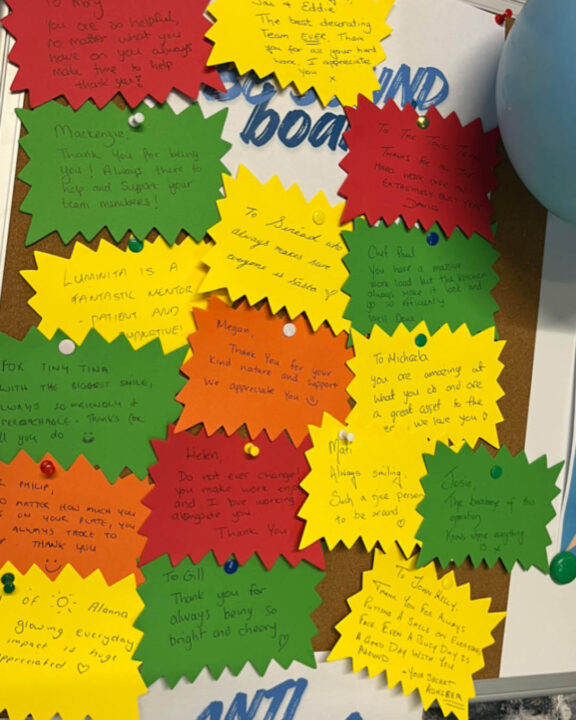 To Mary
You are so helpful,
no matter what you
have on you always
make time to help
thank you!
& Eddie
The best decorating
Team EVER. Thank
you for all your hard
work, I appreciate
you x
board
Mackenzie.
Thank You for being
you! Always there to
help and Support your
team members!
TO THE
THANKS FOR ALL THE
HARD WORK OVER AN
EXTREMELY BUSY YEAR
DAVID
To Sinead who
always makes sure
everyone is
LUMINITA IS A
FANTASTIC MENTOR
- PATIENT AND
SUPPORTIVE!
Chef Paul
You have a massive
work load but the kitchen
always make it look and
go so efficiently
Well Done
Megan,
Thank You for your
kind nature and support
We appreciate You
To Michaela
you are amazing at
what you do and are
a great asset to the
we love you
FOR TINY TINA
WITH THE BIGGEST SMILE,
ALWAYS SO FRIENDLY &
APPROACHABLE. Thanks for
all you do
Helen,
Do not ever change!
you make work enjoy
and I love working
alongside you.
Thank You
Mati
Always smiling,
Such a nice person
to be around
Josie,
The backbone of this
operation
Knows where everything
is x
PHILIP,
NO MATTER HOW MUCH YOU
HAVE ON YOUR PLATE, YOU
ALWAYS
THANK YOU
of Alanna
glowing everyday
impact is huge
appreciated
To Gill
Thank you for
always being so
bright and cheery
TO JOHN KELLY,
THANK YOU FOR ALWAYS
PUTTING A SMILE ON EVERYONES
FACE. EVEN A BUSY DAY IS
A GOOD DAY WITH YOU
AROUND
- YOUR SECRET
ADMIRER
ANTI